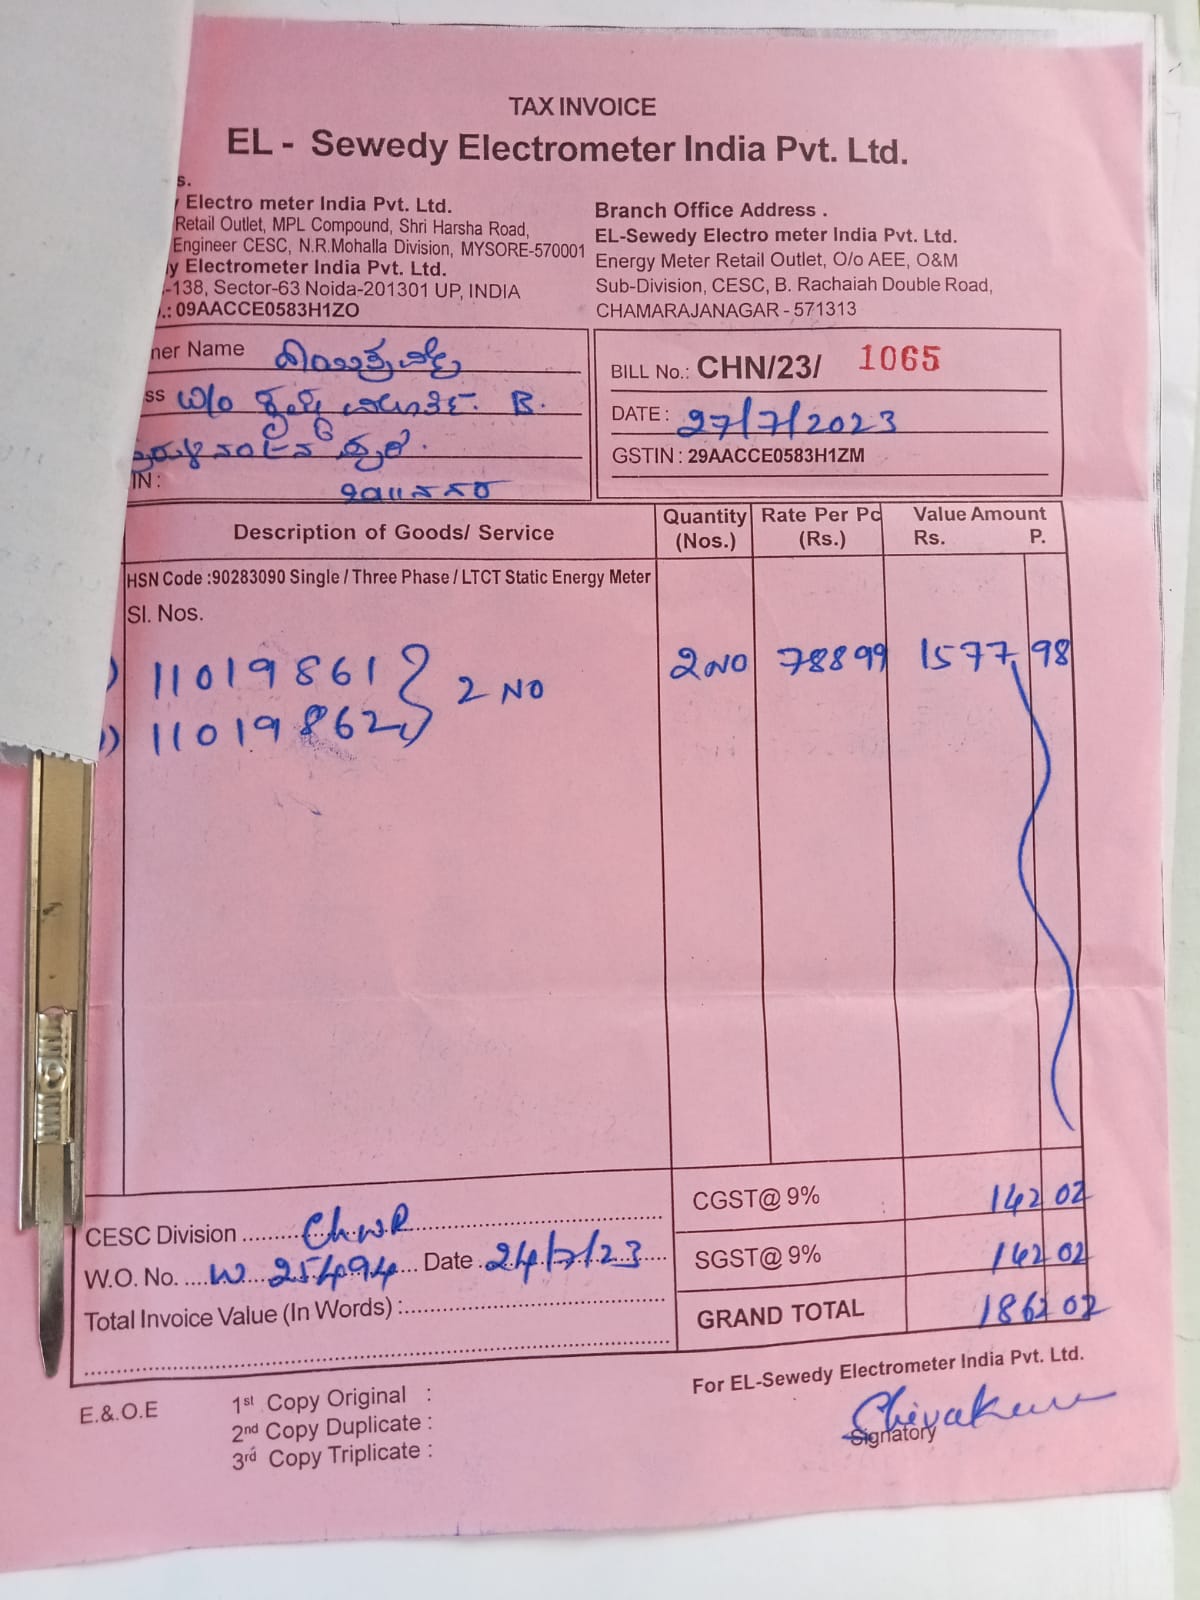 TAX INVOICE
EL - Sewedy Electrometer India Pvt. Ltd.
s.
Electro meter India Pvt. Ltd.
Retail Outlet, MPL Compound, Shri Harsha Road,
Engineer CESC, N.R.Mohalla Division, MYSORE-570001
y Electrometer India Pvt. Ltd.
-138, Sector-63 Noida-201301 UP, INDIA
.: 09AACCE0583H1ZO
Branch Office Address .
EL-Sewedy Electro meter India Pvt. Ltd.
Energy Meter Retail Outlet, O/o AEE, O&M
Sub-Division, CESC, B. Rachaiah Double Road,
CHAMARAJANAGAR - 571313
ner Name
ss W/o B.
IN :
BILL No.: CHN/23/ 1065
DATE : 27/7/2023
GSTIN : 29AACCE0583H1ZM
Description of Goods/ Service Quantity (Nos.) Rate Per Pc (Rs.) Value Amount Rs. P.
HSN Code :90283090 Single / Three Phase / LTCT Static Energy Meter
Sl. Nos.
) 11019861 2 NO 2 NO 78899 1577 98
) 11019862
CGST@ 9% 142 02
SGST@ 9% 142 02
GRAND TOTAL 1862 02
CESC Division ......... ChNR
W.O. No. .... W 25494 Date 24/7/23
Total Invoice Value (In Words) :
For EL-Sewedy Electrometer India Pvt. Ltd.
Signatory
E.&.O.E
1st Copy Original :
2nd Copy Duplicate :
3rd Copy Triplicate :